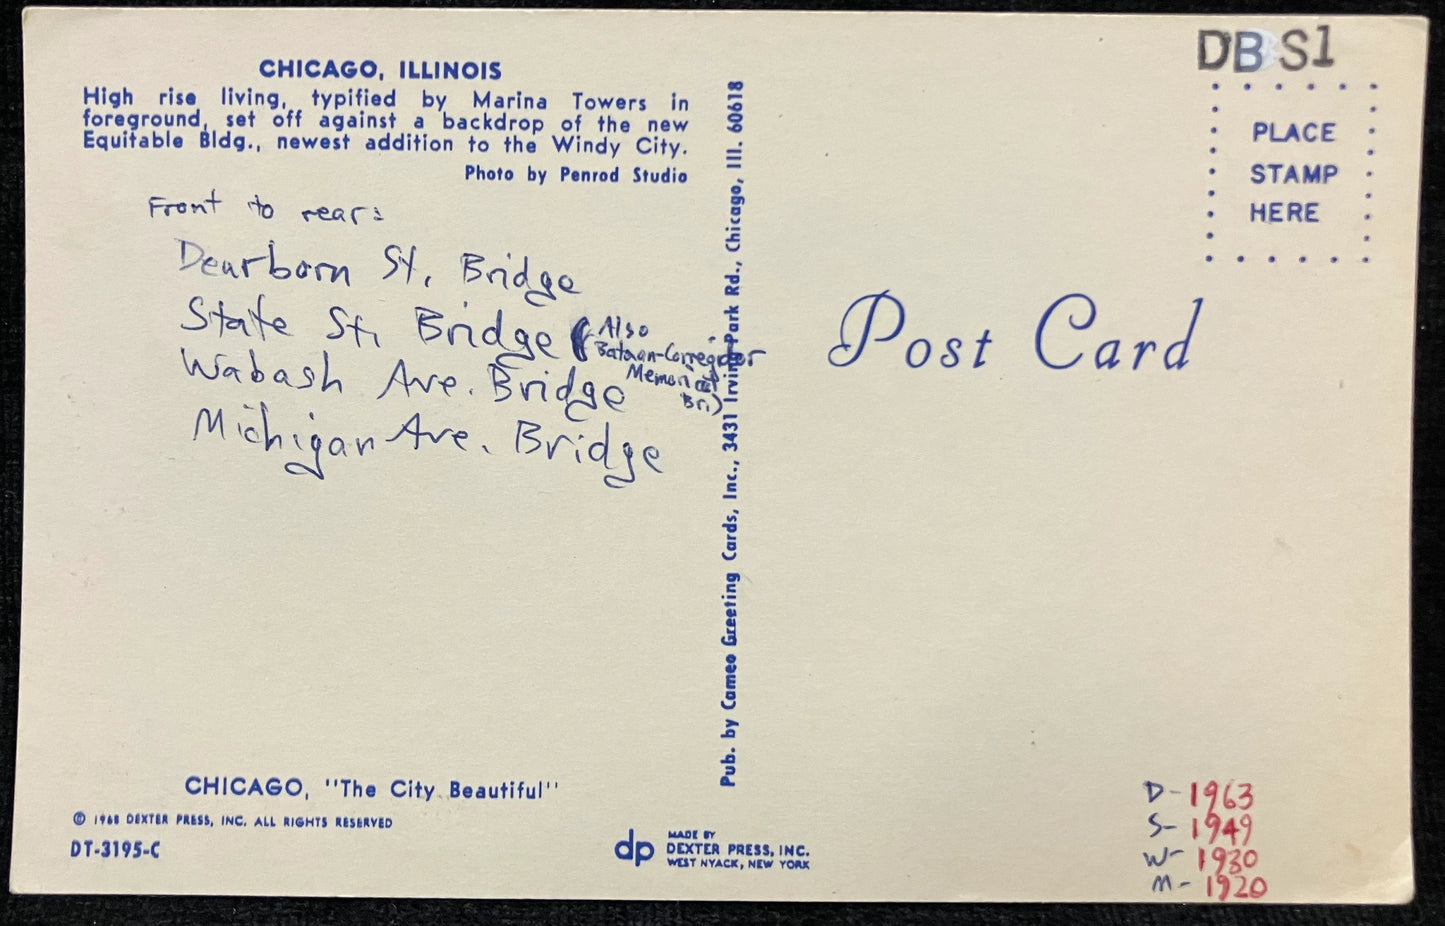 DB S1
CHICAGO, ILLINOIS
High rise living, typified by Marina Towers in
foreground, set off against a backdrop of the new
Equitable Bldg., newest addition to the Windy City.
Photo by Penrod Studio
Front to rear:
Dearborn St. Bridge
State St. Bridge (Also
Bataan-Corregidor
Memorial
Br.)
Wabash Ave. Bridge
Michigan Ave. Bridge
CHICAGO, "The City Beautiful"
© 1968 DEXTER PRESS, INC. ALL RIGHTS RESERVED
DT-3195-C
Pub. by Cameo Greeting Cards, Inc., 3431 Irving Park Rd., Chicago, Ill. 60618
dp
MADE BY
DEXTER PRESS, INC.
WEST NYACK, NEW YORK
PLACE
STAMP
HERE
Post Card
D-1963
S-1949
W-1930
M-1920